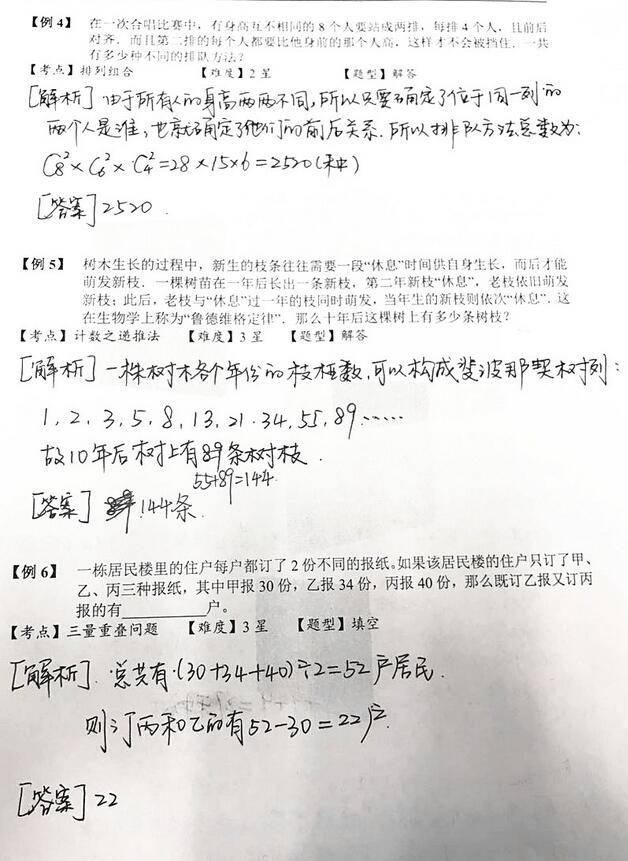 【例 4】 在一次合唱比赛中，有身高互不相同的 8 个人要站成两排，每排 4 个人，且前后
对齐．而且第二排的每个人都要比他身前的那个人高，这样才不会被挡住．一共
有多少种不同的排队方法？
【考点】排列组合 【难度】2 星 【题型】解答
[解析] 由于所有人的身高两两不同,所以只要确定了位于同一列的
两个人是谁,也就确定了他们的前后关系.所以排队方法总数为:
C₈²×C₆²×C₄²=28×15×6=2520(种)
[答案] 2520.
【例 5】 树木生长的过程中，新生的枝条往往需要一段“休息”时间供自身生长，而后才能
萌发新枝．一棵树苗在一年后长出一条新枝，第二年新枝“休息”，老枝依旧萌发
新枝；此后，老枝与“休息”过一年的枝同时萌发，当年生的新枝则依次“休息”．这
在生物学上称为“鲁德维格定律”．那么十年后这棵树上有多少条树枝？
【考点】计数之递推法 【难度】3 星 【题型】解答
[解析] 一株树木各个年份的枝桠数,可以构成斐波那契树列:
1, 2, 3, 5, 8, 13, 21, 34, 55, 89……
故10年后树上有89条树枝.
55+89=144
[答案] 144条.
【例 6】 一栋居民楼里的住户每户都订了 2 份不同的报纸。如果该居民楼的住户只订了甲、
乙、丙三种报纸，其中甲报 30 份，乙报 34 份，丙报 40 份，那么既订乙报又订丙
报的有__________户。
【考点】三量重叠问题 【难度】3 星 【题型】填空
[解析]. 总共有(30+34+40)÷2=52户居民.
则订丙和乙的有52-30=22户.
[答案] 22